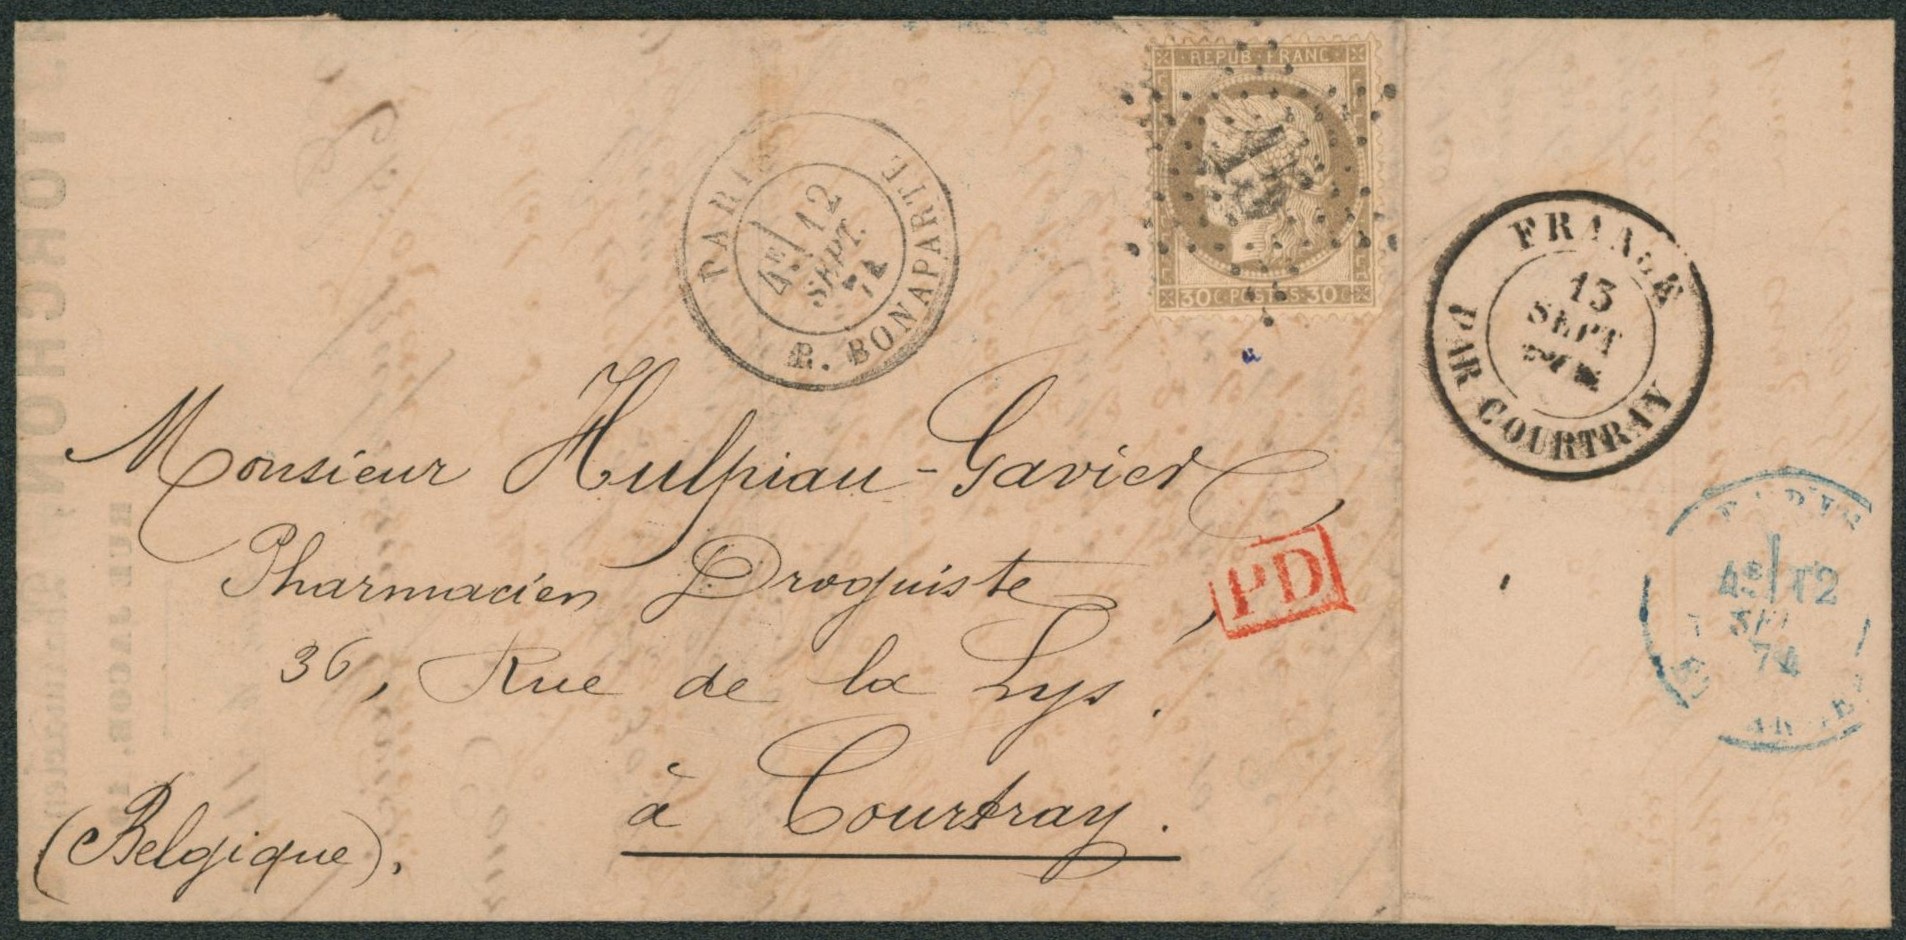 REPUB · FRANC
30 C · POSTES · 30 C
PARIS
4E 12
SEPT.
74
R. BONAPARTE
FRANCE
13
SEPT
PAR COURTRAY
Monsieur Hulpiau-Gavier
Pharmacien Droguiste,
36, Rue de la Lys.
à Courtray.
(Belgique).
PD
PARIS
4E 12
74
TORCHON
RUE JACOB, 19